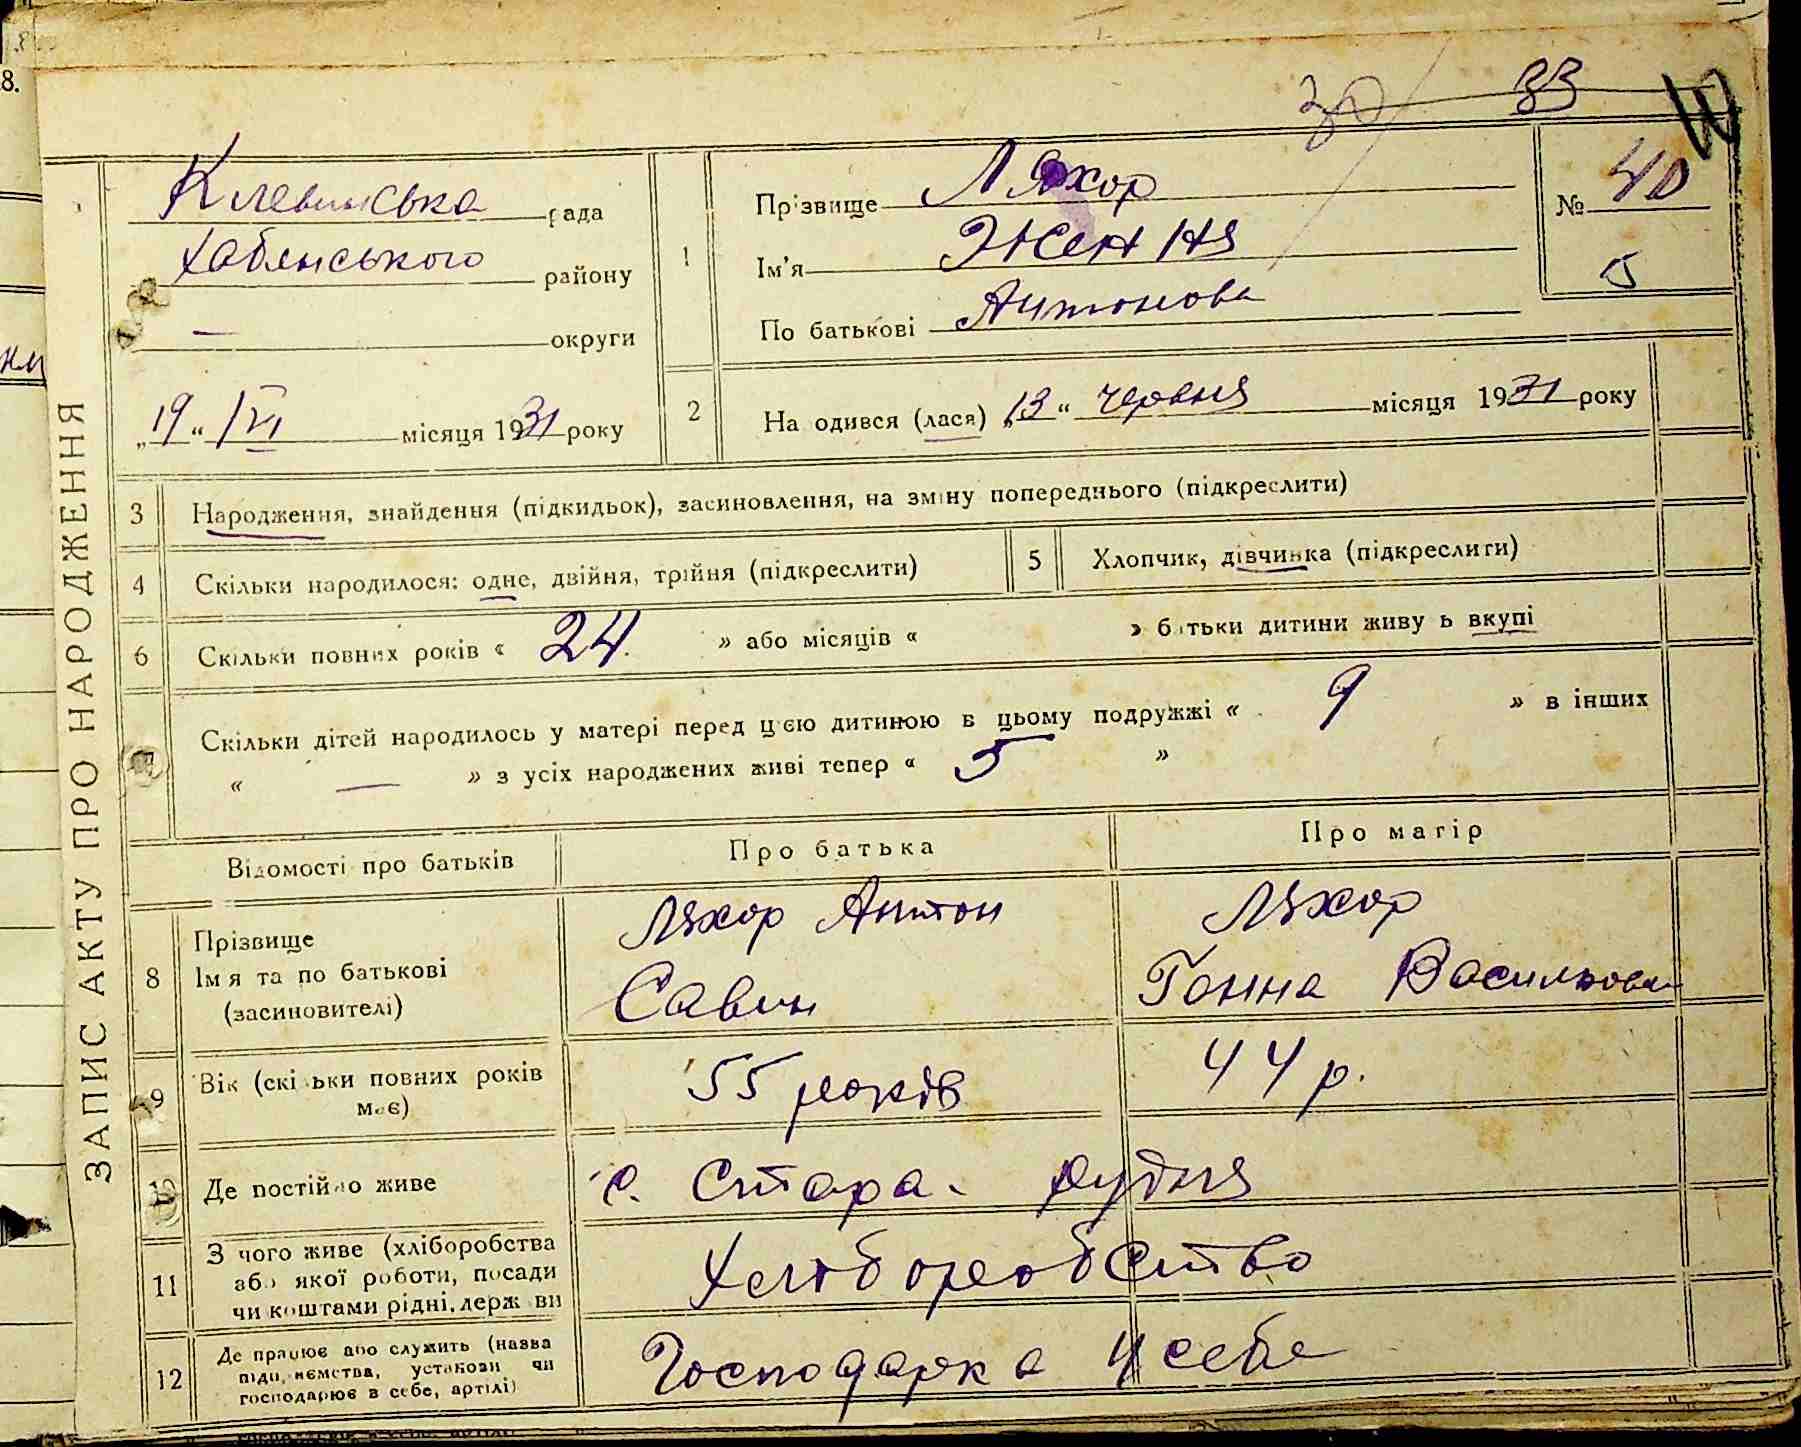 8.
30 33
ЗАПИС АКТУ ПРО НАРОДЖЕННЯ
Клевинська рада
Хабенського району
— округи
„19“ VI місяця 1931 року
1
Прізвище Ляхор
Ім'я Ження
По батькові Антонова
№ 40
5
2
На одився (лася) „13“ червня місяця 1931 року
3 Народження, знайдення (підкидьок), засиновлення, на зміну попереднього (підкреслити)
4 Скільки народилося: одне, двійня, трійня (підкреслити)
5 Хлопчик, дівчинка (підкреслити)
6 Скільки повних років « 24. » або місяців « » батьки дитини живу ь вкупі
7 Скільки дітей народилось у матері перед цією дитиною в цьому подружжі « 9 » в інших
« — » з усіх народжених живі тепер « 5 »
Відомості про батьків
Про батька
Про матір
8 Прізвище
Ім я та по батькові
(засиновителі)
Ляхор Антон
Савин
Ляхор
Ганна Васильова
9 Вік (скільки повних років
має)
55 років
44 р.
10 Де постійно живе
с. Стара. Рудня
11 З чого живе (хліборобства
або якої роботи, посади
чи коштами рідні, держ ви
Хліборобство
12 Де працює або служить (назва
підп, иємства, установи чи
господарює в себе, артілі)
Господарка у себе